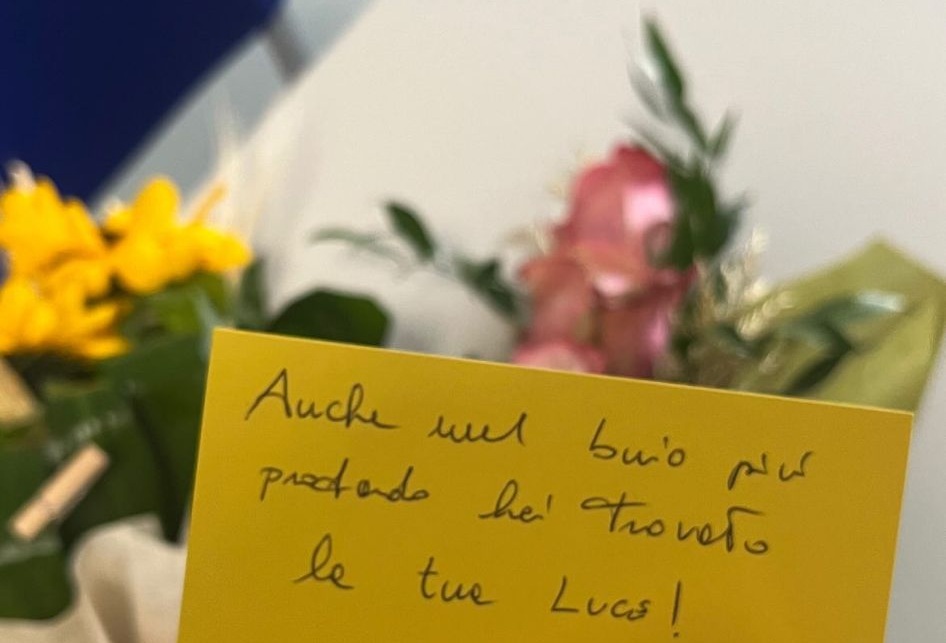 Anche nel buio più
profondo hai trovato
la tua Luce!